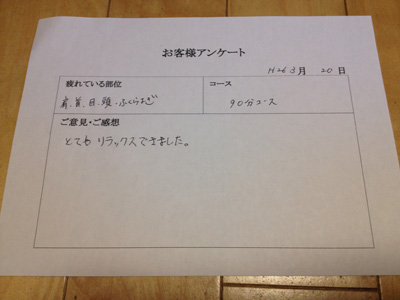 お客様アンケート
H26 3月 20日
疲れている部位
コース
肩、首、目、頭、ふくらはぎ
90分コース
ご意見・ご感想
とてもリラックスできました。